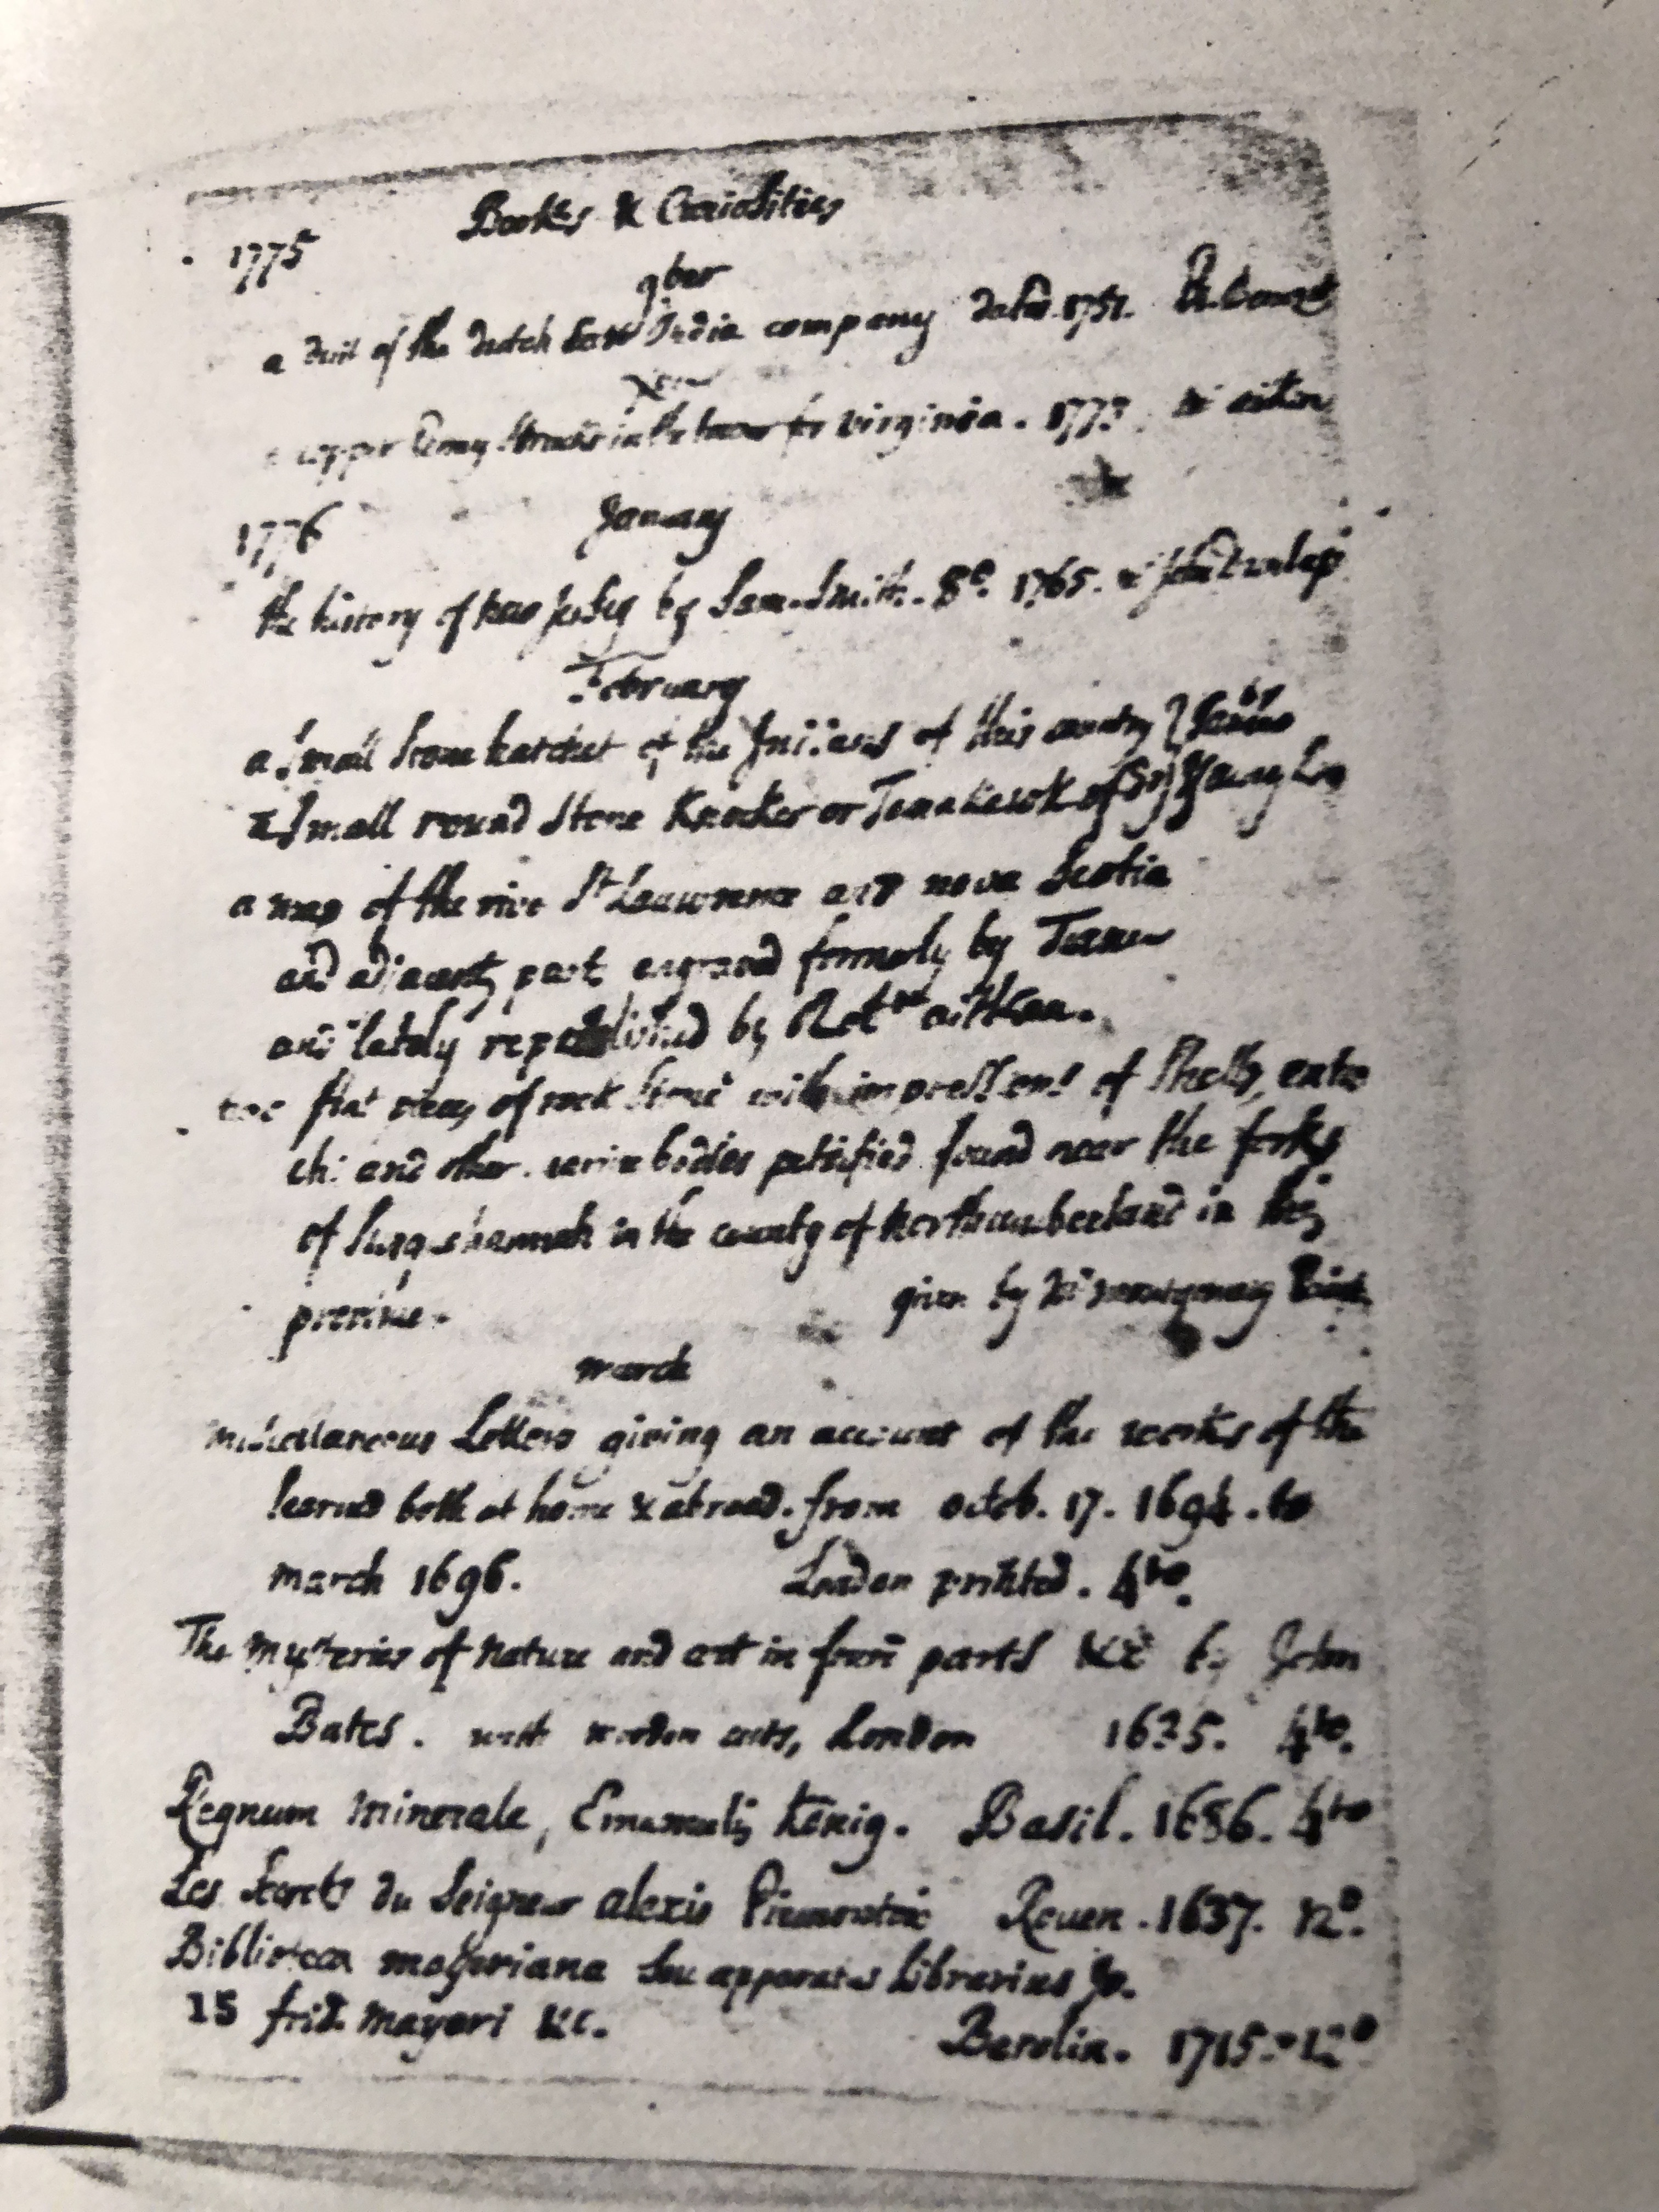 Books & Curiosities
1775
9ber
a duit of the dutch East India company dated 1751.
Xber
a copper penny struck in the tower for virginia. 1773. aitken
1776 January
the history of new Jersey by Sam. Smith. 8º. 1765.
February
a small stone hatchet of the Indians of this country } by
a small round stone Knocker or Tomahawk of Dº }
a map of the river St Lawrence and nova Scotia
and adjacents parts engraved formerly by
and lately republished by Robert aitken.
two flat pieces of rock stone with impressions of shells, entro
chi and other marine bodies petrified found near the forks
of Susquehannah in the county of northumberland in this
province. given by
march
miscellaneous Letters giving an account of the works of the
learned both at home & abroad. from octob. 17. 1694. to
march 1696. London printed. 4to.
The mysteries of nature and art in four parts &c by John
Bates. with wooden cuts, London 1635. 4to.
Regnum minerale, Emanuelis König. Basil. 1686. 4to
Les Secrets du Seigneur alexis Piemontois Rouen. 1637. 12º.
Biblioteca mayeriana seu apparatus librarius Jo.
15 frid. mayeri &c. Berolin. 1715. 12º